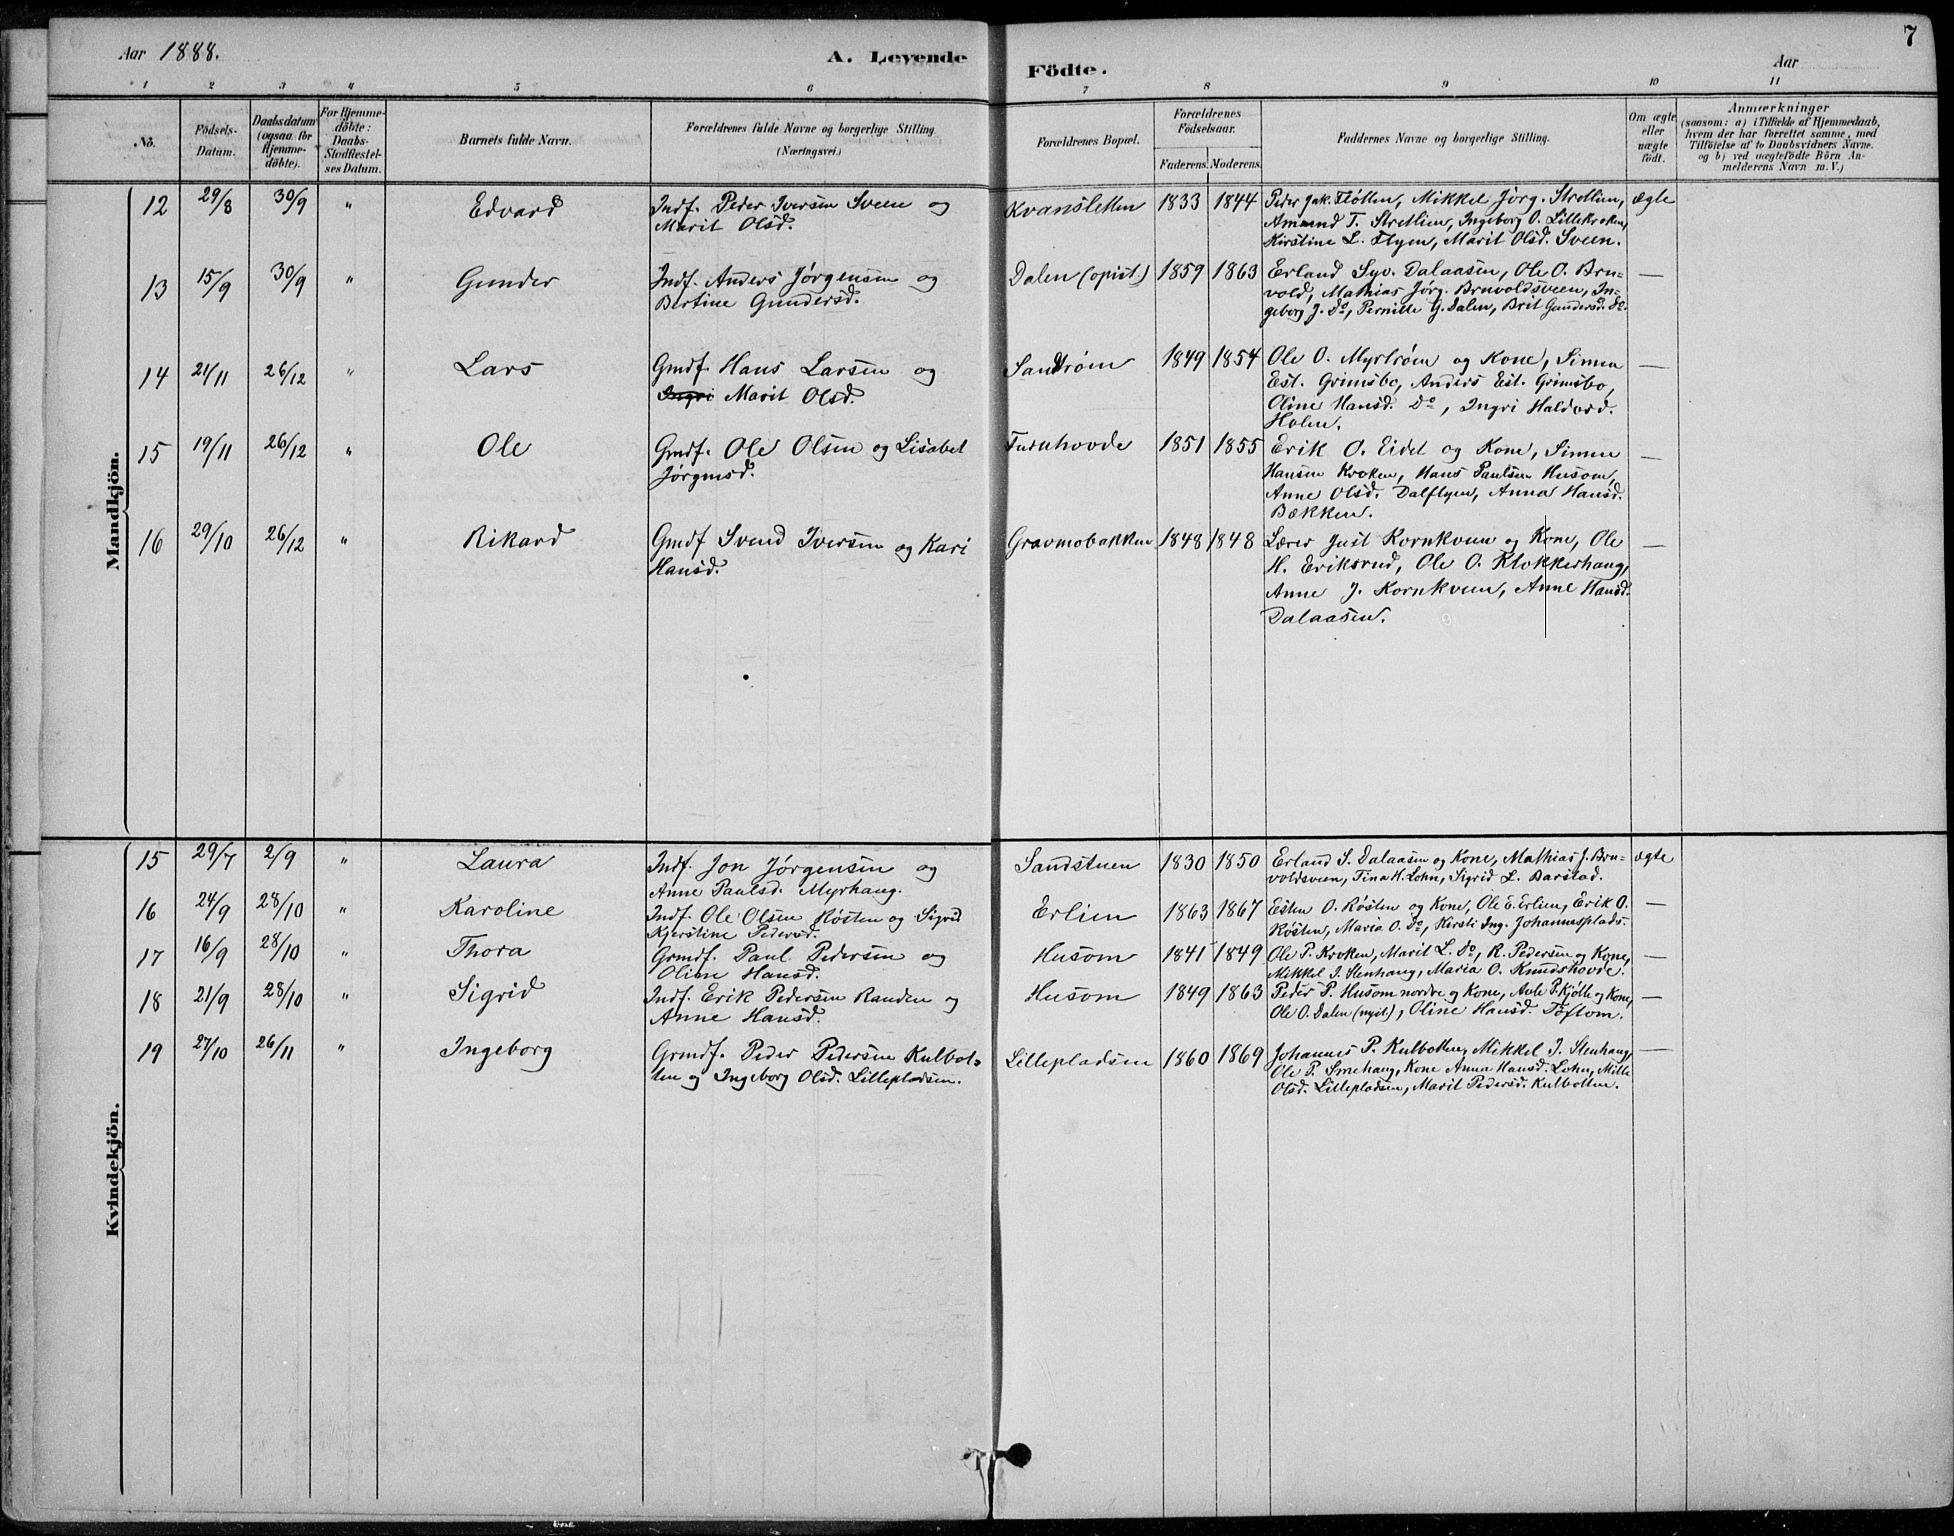 Aar 1888.
A. Levende
Födte.
Aar
7
1 2 3 4 5 6 7 8 9 10 11
No.
Födsels-
Datum.
Daabsdatum
(ogsaa for
Hjemme-
döbte).
For Hjemme-
döbte:
Daabs-
Stadfæstel-
ses Datum.
Barnets fulde Navn.
Forældrenes fulde Navne og borgerlige Stilling.
(Næringsvei.)
Forældrenes Bopæl.
Forældrenes
Födselsaar.
Faderens. Moderens.
Faddernes Navne og borgerlige Stilling.
Om ægte
eller
uægte
födt.
Anmærkninger
(saasom: a) i Tilfælde af Hjemmedaab,
hvem der har forrettet samme, med
Tilföielse af to Daabsvidners Navne.
og b) ved uægtefödte Börn An-
melderens Navn m. V.)
Mandkjön.
12 29/8 30/9 " Edvard
Indf. Peder Iversen Sveen og
Marit Olsd.
Kvansletten 1833 1844
Peder Jak. Fløtten, Mikkel Jörg. Stretlien,
Amund T. Stretlien, Ingeborg O. Lillekroken,
Kirstine L. Flyen, Marit Olsd. Sveen.
ægte
13 15/9 30/9 " Gunder
Indf. Anders Jørgensen og
Bertine Gundersd.
Dalen (opist.) 1859 1863
Erland Syv. Dalaasen, Ole O. Bru-
vold, Mathias Jørg. Bruvoldsveen, In-
geborg J. Do, Pernille G. Dalen, Brit Gundersd. Do.
—
14 21/11 26/12 " Lars
Gmdf. Hans Larsen og
Ingri Marit Olsd.
Sandrøm 1849 1854
Ole O. Myrtrøm og Kone, Simen
Est. Grimsbo, Anders Est. Grimsbo,
Oline Hansd. Do, Ingri Haldord.
Holen.
—
15 19/11 26/12 " Ole
Gmdf. Ole Olsen og Lisabet
Jørgensd.
Furuhovde 1851 1855
Erik O. Eidet og Kone, Simen
Hansen Kroken, Hans Paulsen Husom,
Anne Olsd. Dalflyen, Anna Hansd.
Bækken.
—
16 29/10 26/12 " Rikard
Gmdf Svend Iversen og Kari
Hansd.
Gravmobakken 1848 1848
Lærer Just Kornkveen og Kone, Ole
H. Eriksrud, Ole O. Klokkerhaug,
Anne J. Kornkveen, Anne Hansd.
Dalaasen.
—
Kvindekjön.
15 29/7 2/9 " Laura
Indf. Jon Jørgensen og
Anne Paulsd. Myrhaug.
Sandstuen 1830 1850
Erland S. Dalaasen og Kone, Mathias J. Bru-
voldsveen, Tina H. Lohn, Sigrid L. Barstad.
ægte
16 24/9 28/10 " Karoline
Indf. Ole Olsen Røsten og Sigrid
Kjerstine Pedersd.
Erlien 1863 1867
Esten O. Røsten og Kone, Ole E. Erlien, Erik O.
Røsten, Maria O. Do, Kirsti Ing. Johannesplads.
—
17 16/9 28/10 " Thora
Grmdf. Paul Pedersen og
Oline Hansd.
Husom 1841 1849
Ole P. Kroken, Marit L. Do, R. Pedersen og Kone,
Mikkel J. Stenhaug, Maria O. Knudshovde.
—
18 21/9 28/10 " Sigrid
Indf. Erik Pedersen Randen og
Anne Hansd.
Husom 1849 1863
Peder P. Husom nordre og Kone, Avle P. Kjølle og Kone,
Ole O. Dalen (nyst.), Oline Hansd. Toftom.
—
19 27/10 26/11 " Ingeborg
Grmdf. Peder Pedersen Kulbot-
ten og Ingeborg Olsd. Lillepladsen.
Lillepladsen 1860 1869
Johannes P. Kulbotten, Mikkel J. Stenhaug,
Ole P. Smehaug, Kone Anna Hansd. Lohn, Mille
Olsd. Lillepladsen, Marit Pedersd. Kulbotten.
—